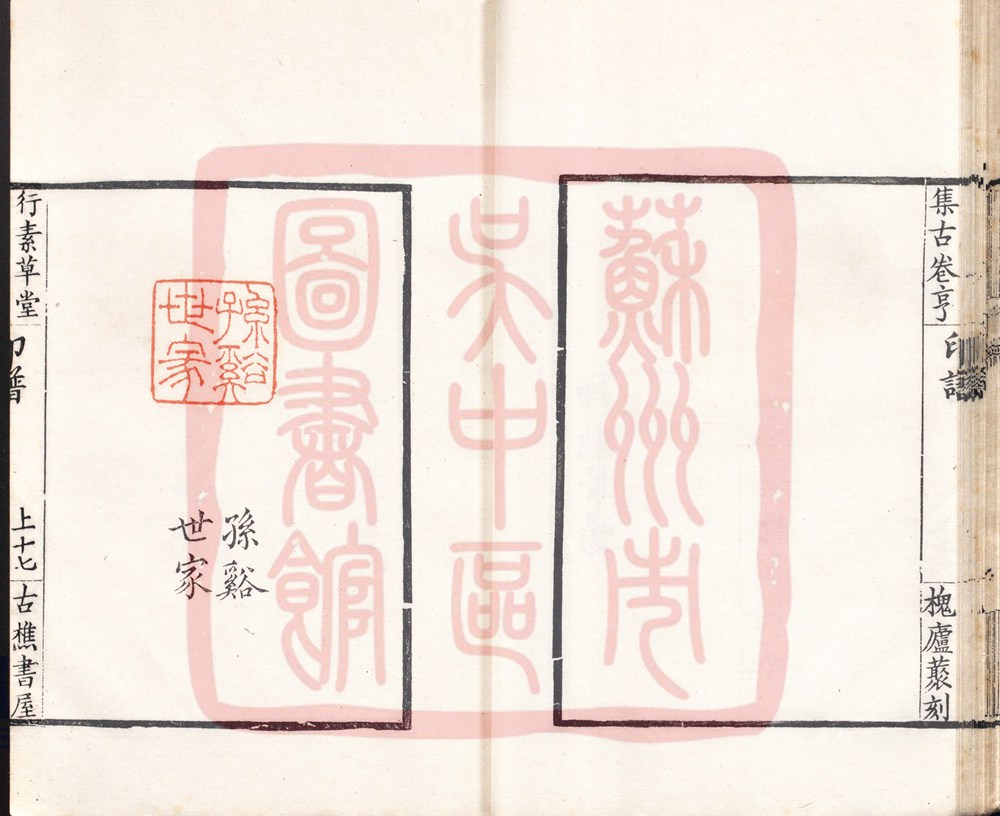 集古卷亨
印譜
槐廬叢刻
蘇州市
吳中區
圖書館
孫谿
世家
孫谿
世家
行素草堂
印譜
上十七
古樵書屋